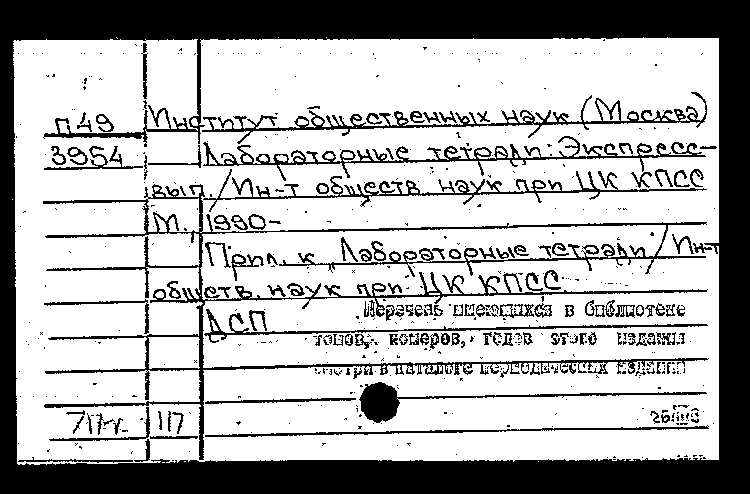 П49 Институт общественных наук (Москва)
3954 Лабораторные тетради: Экспресс-
вып. / Ин-т обществ. наук при ЦК КПСС
М., 1990-
Прил. к „Лабораторные тетради / Ин-т
обществ. наук при ЦК КПСС
ДСП
Перечень имеющихся в библиотеке
томов, номеров, годов этого издания
смотри в каталоге периодических изданий
117